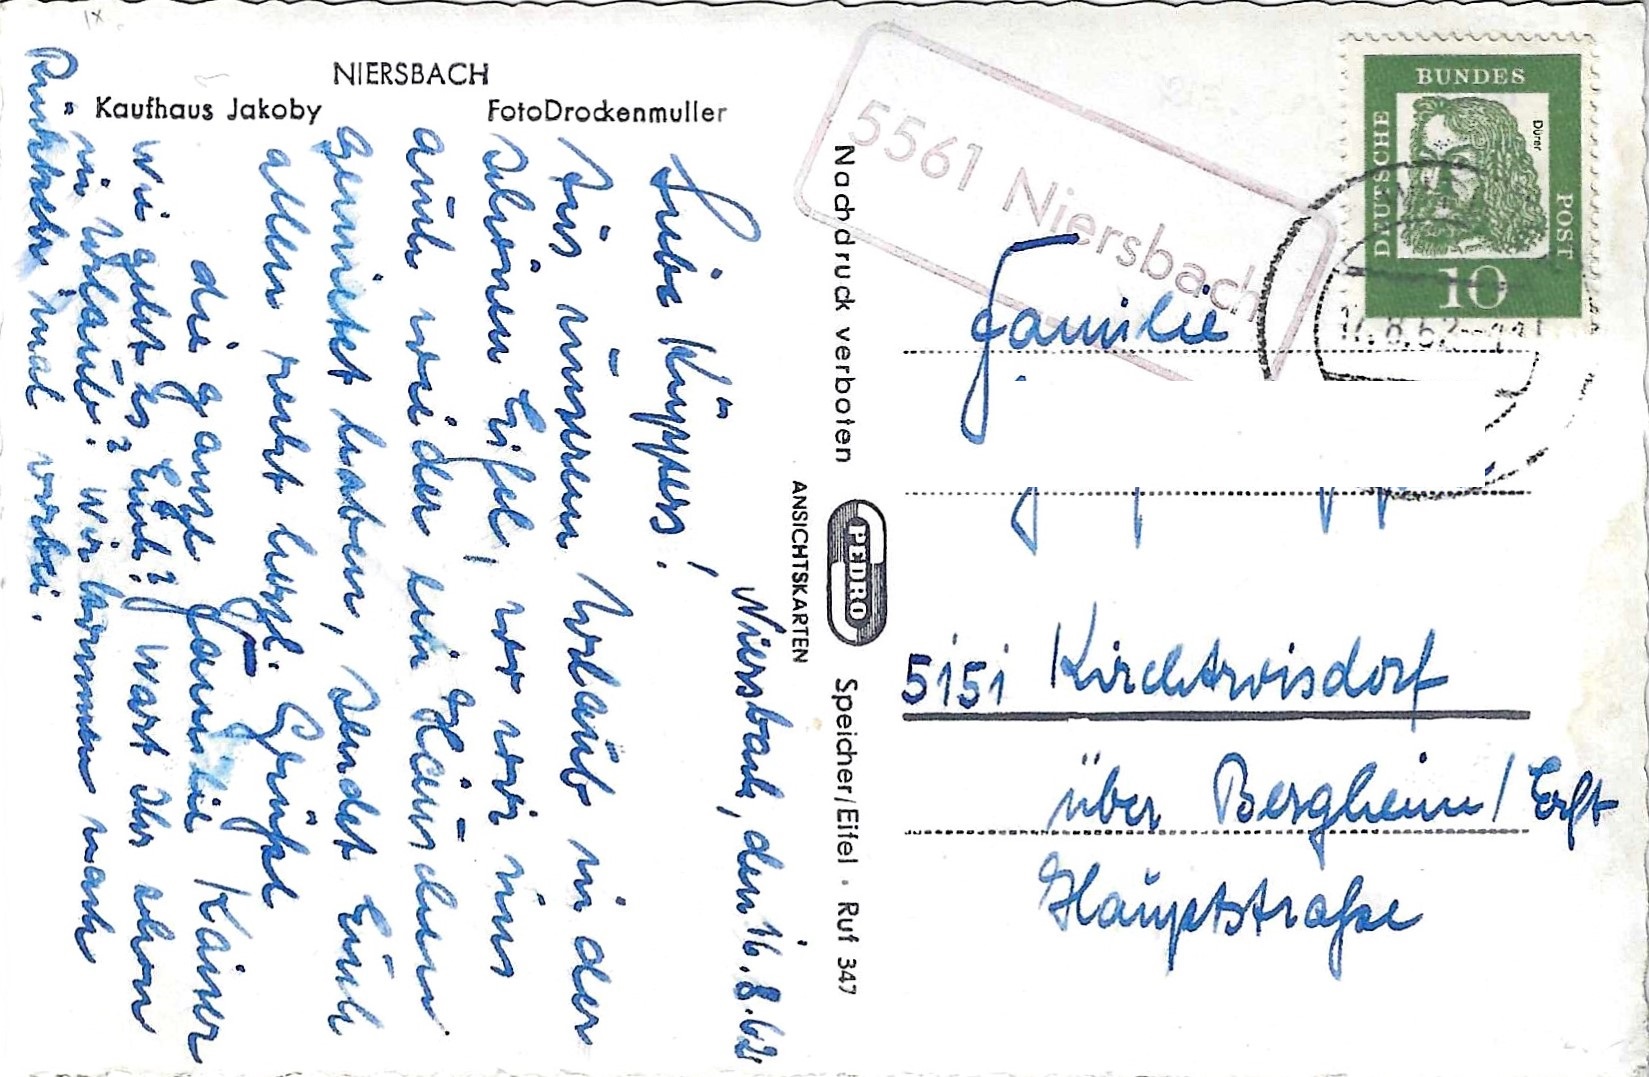 NIERSBACH
Kaufhaus Jakoby
FotoDrockenmuller
Niersbach, den 16.8.62
Liebe Küppers!
Aus unserem Urlaub in der
schönen Eifel, wo wir uns
auch wieder ein Häuschen
gemietet haben, sendet Euch
allen recht herzl. Grüße
die ganze Familie Kaiser
Wie geht es Euch? Wart Ihr schon
in Urlaub? Wir kommen nach
Rückkehr mal vorbei.
Nachdruck verboten
PEDRO
ANSICHTSKARTEN
Speicher/Eifel · Ruf 347
5561 Niersbach
DEUTSCHE
BUNDES
POST
Dürer
10
8.62
Familie
5151 Kirchtroisdorf
über Bergheim/Erft
Hauptstraße